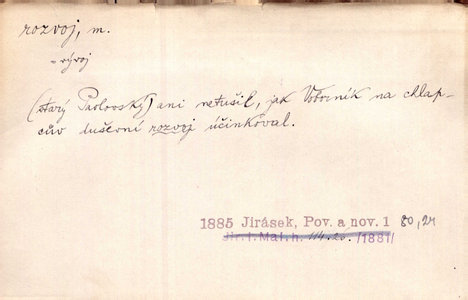 rozvoj, m.
= vývoj
(starý Pavlovský) ani netušil, jak Voborník na chlap-
cův duševní rozvoj účinkoval.
1885 Jirásek, Pov. a nov. 1 80,24
Jir. t. Mal. h. 114.25. /1881/